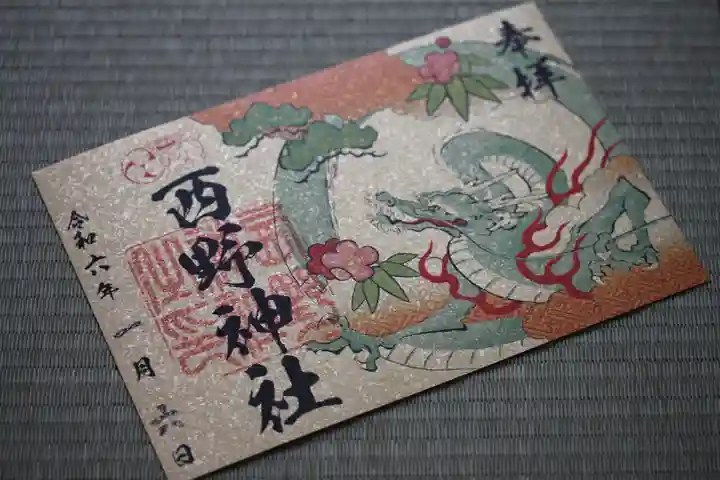 奉拝
西野神社
令和六年一月六日